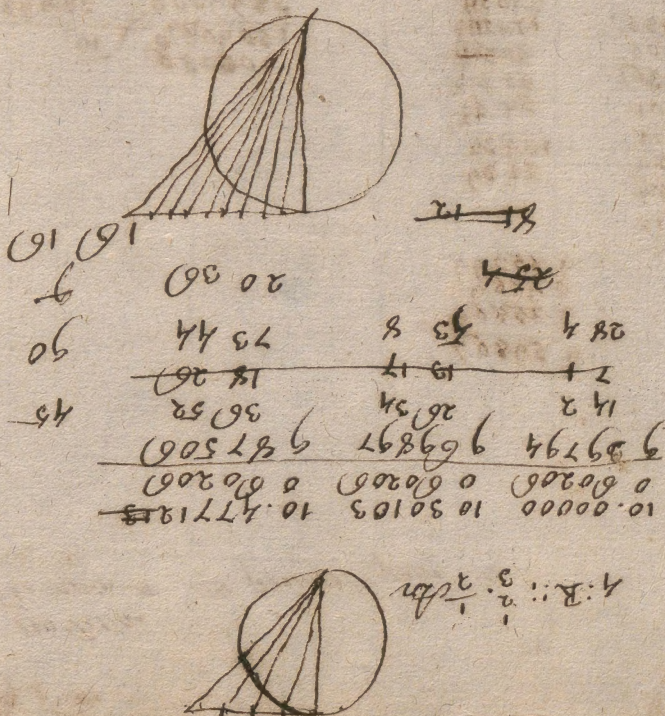 10.00000 10 30103 10.4771213
0 60206 0 60206 0 60206
9 39794 9 69897 9 87506
14 2 26 34 36 52 45
7 1 13 17 18 26
28 4 53 8 73 44 90
25 4 20 36 9
8 12 16 16